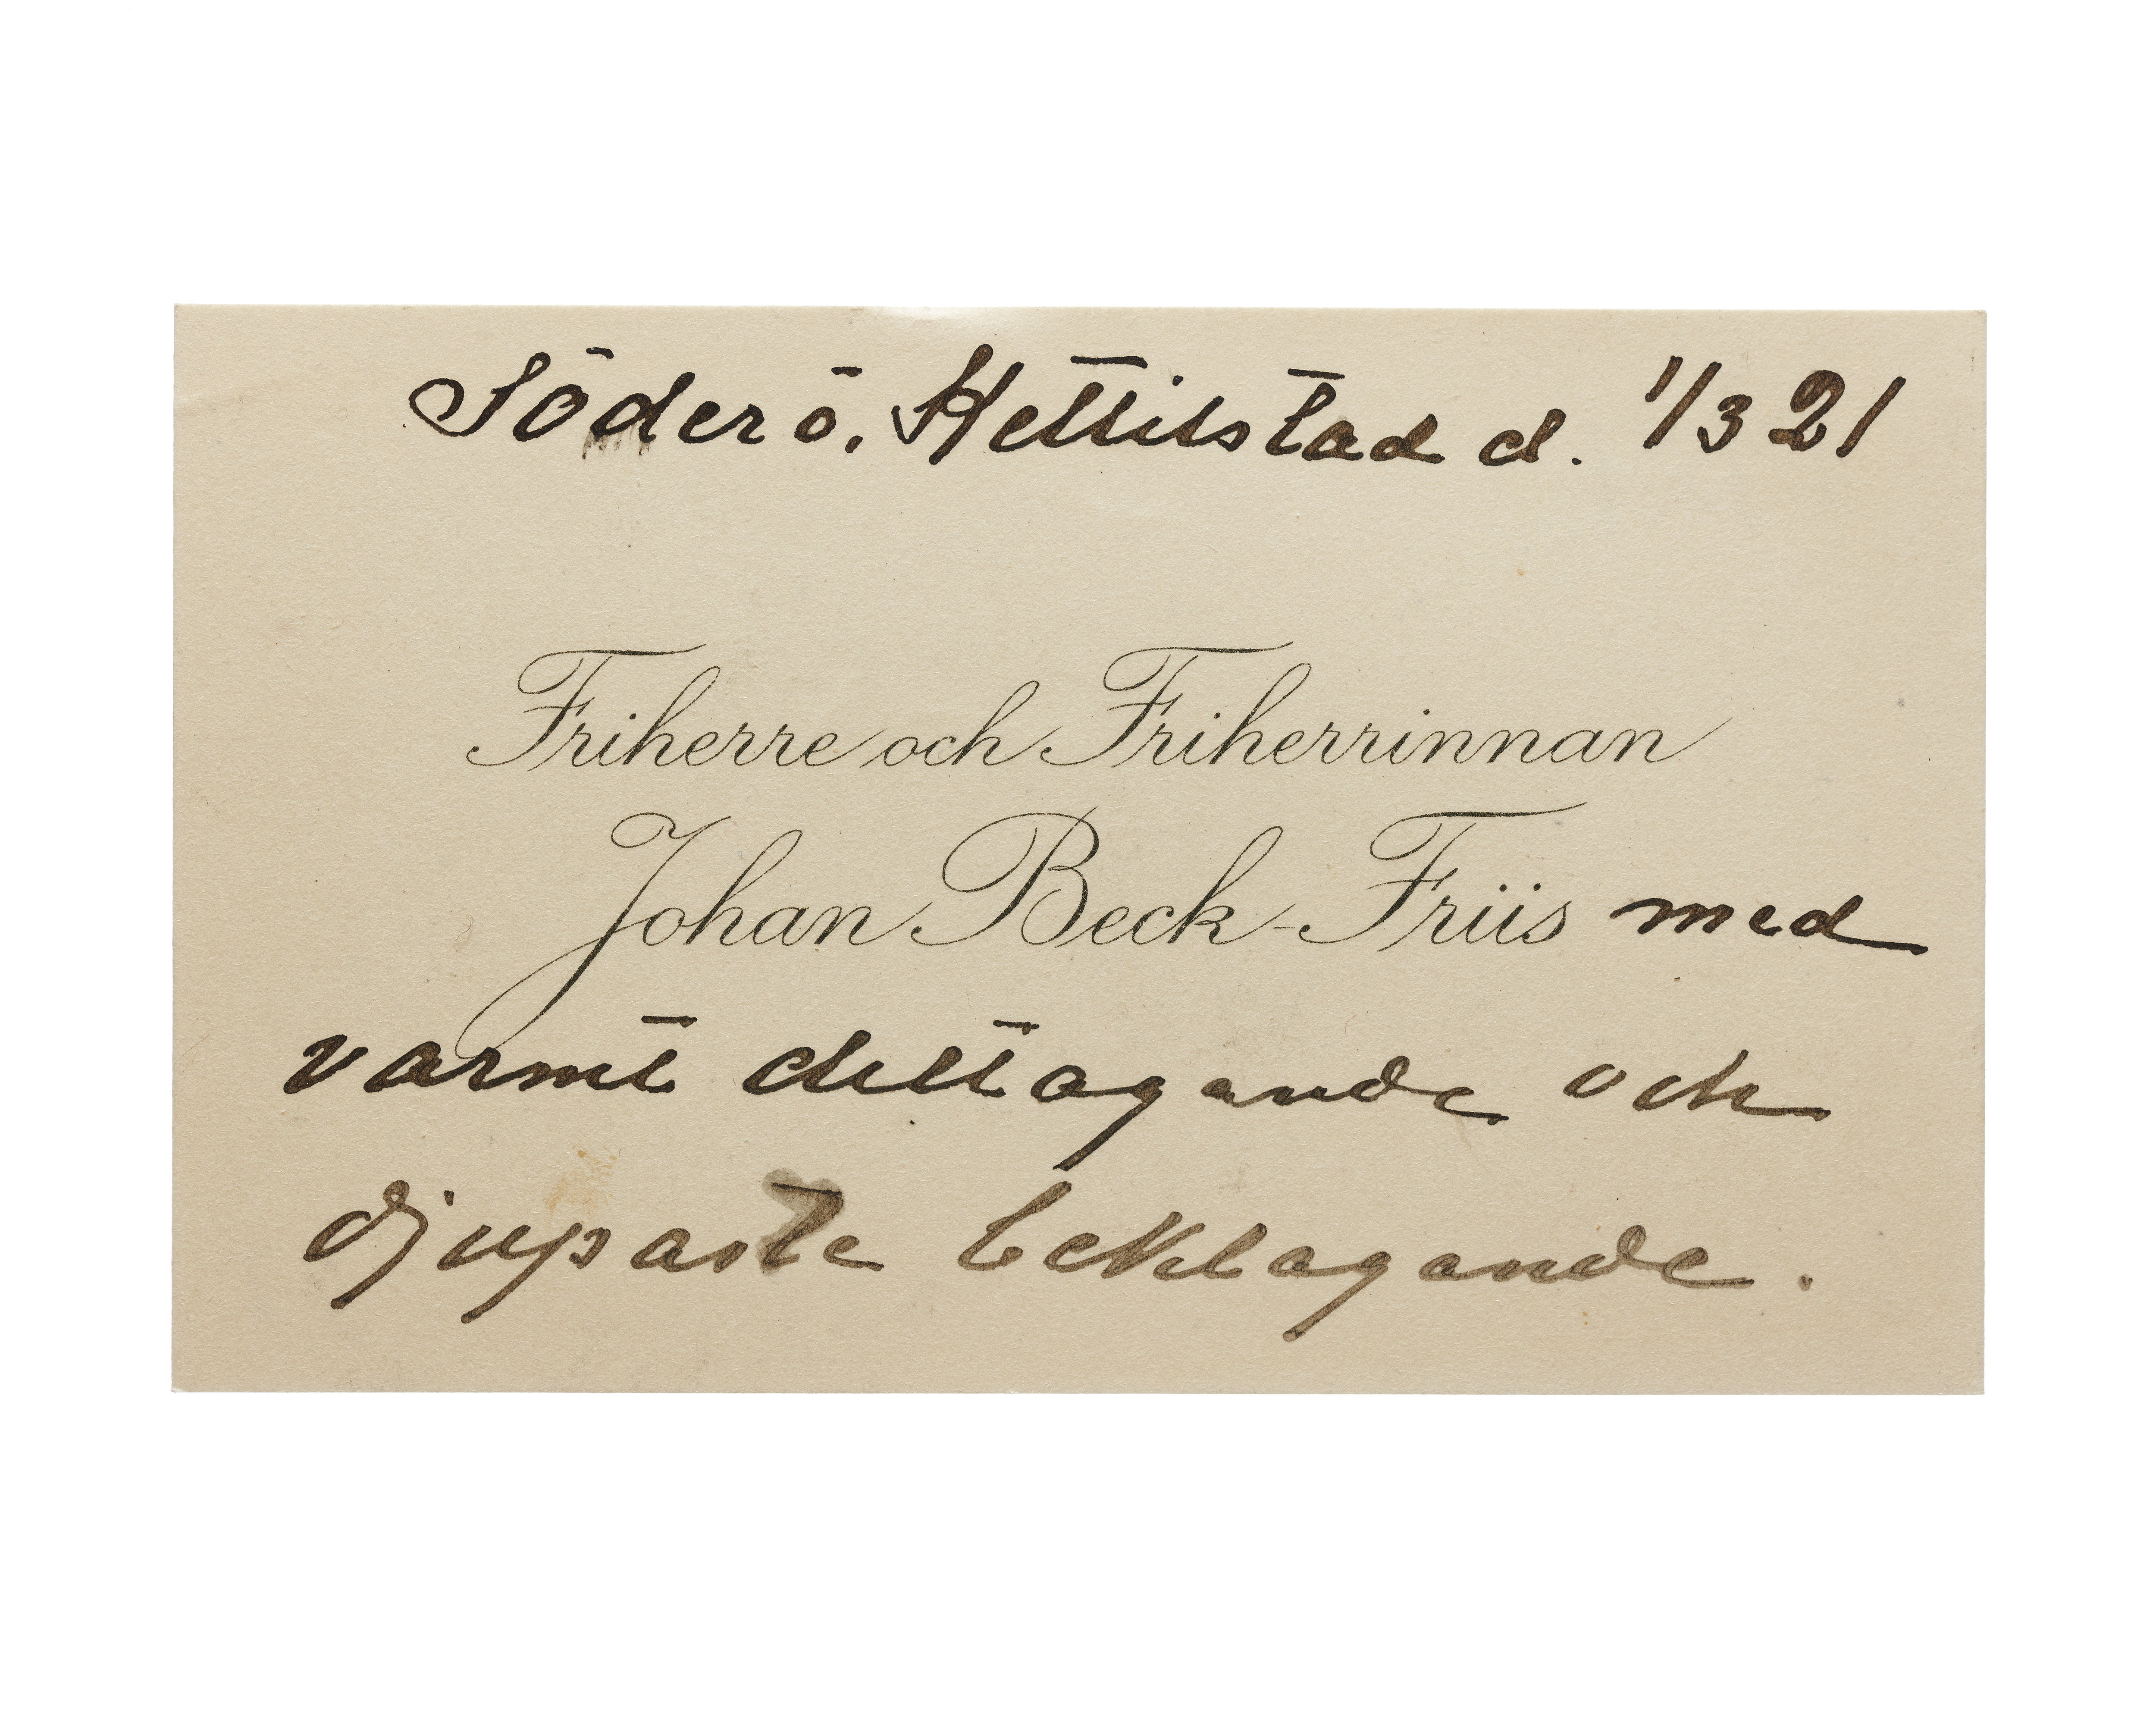 Söderö. Kettilstad d. 1/3 21
Friherre och Friherrinnan
Johan Beck-Friis med
varmt deltagande och
djupaste beklagande.